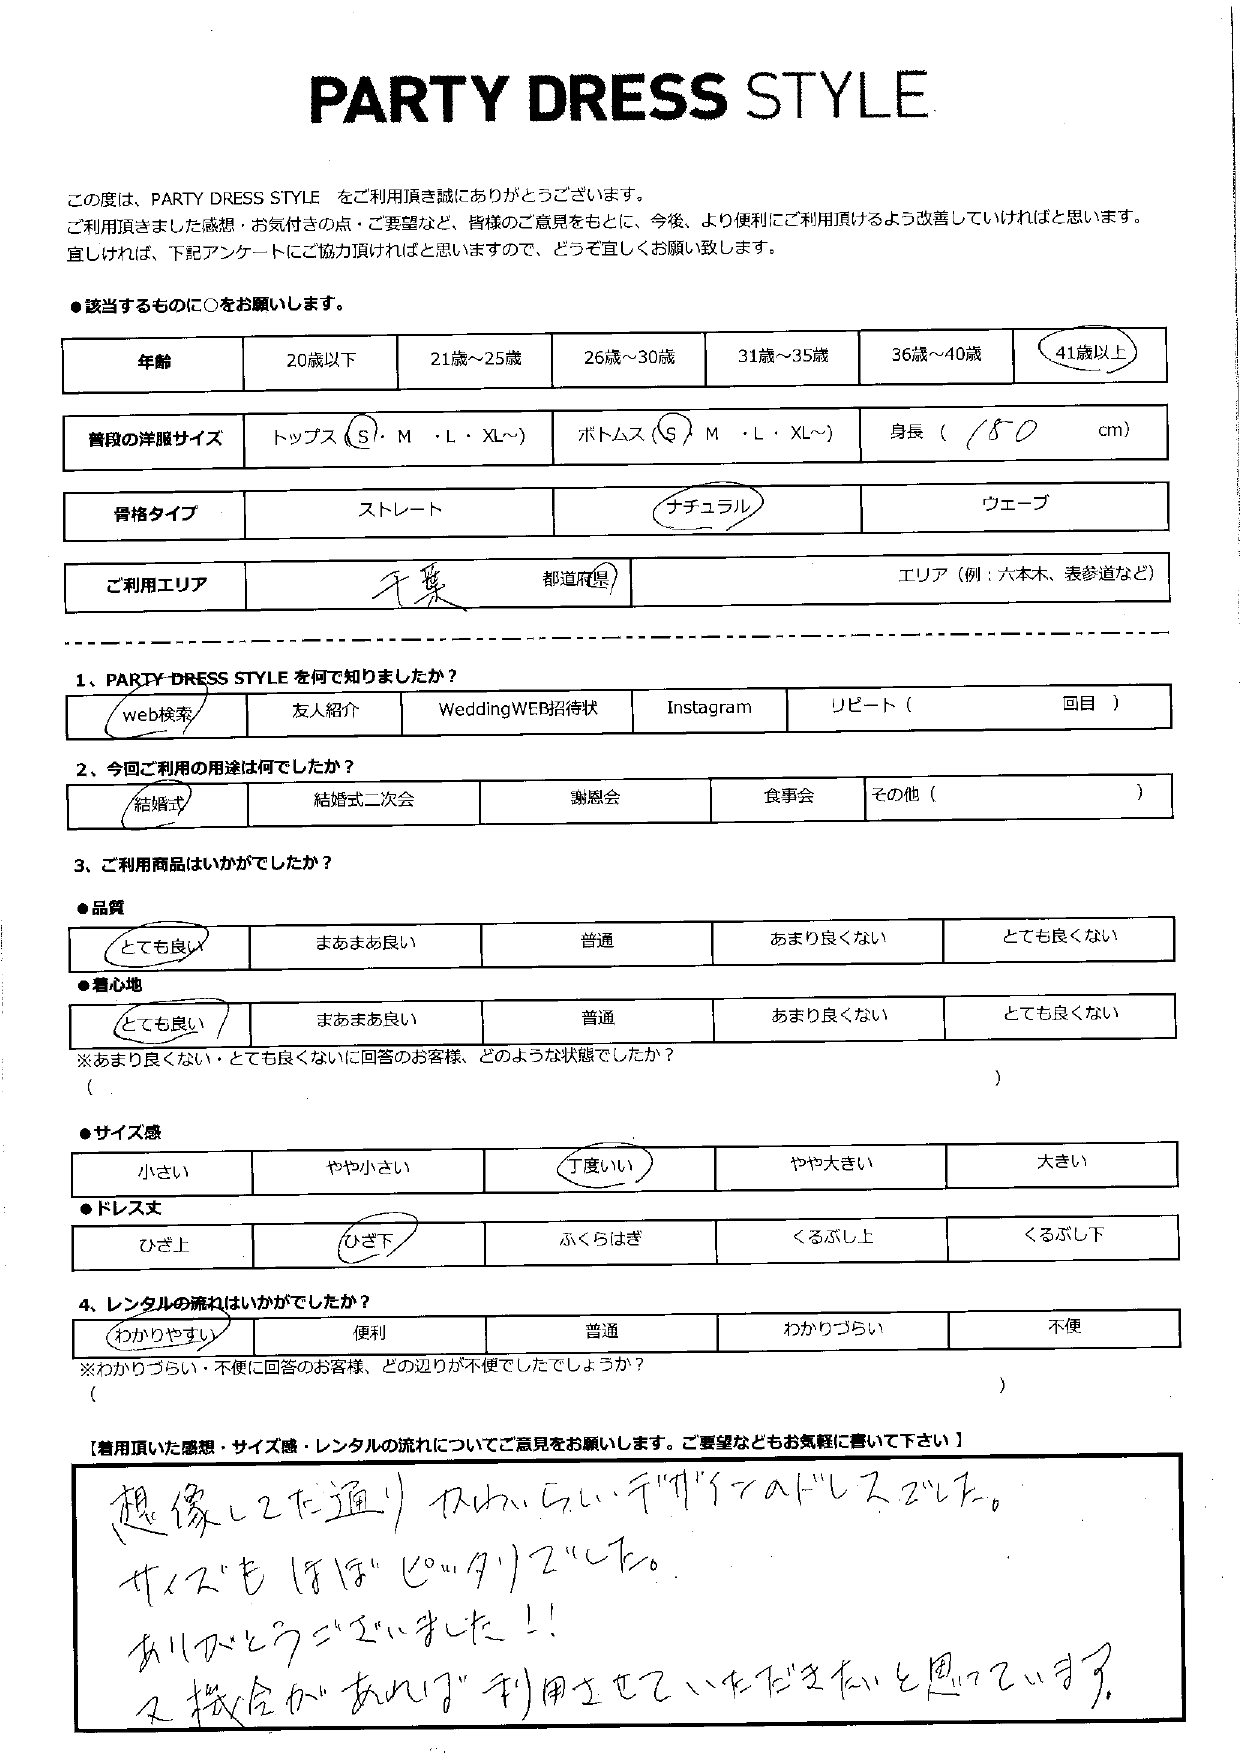 PARTY DRESS STYLE
この度は、PARTY DRESS STYLE をご利用頂き誠にありがとうございます。
ご利用頂きました感想・お気付きの点・ご要望など、皆様のご意見をもとに、今後、より便利にご利用頂けるよう改善していければと思います。
宜しければ、下記アンケートにご協力頂ければと思いますので、どうぞ宜しくお願い致します。
●該当するものに○をお願いします。
年齢 20歳以下 21歳～25歳 26歳～30歳 31歳～35歳 36歳～40歳 41歳以上
普段の洋服サイズ トップス（S・ M ・L・ XL～) ボトムス（S・ M ・L・ XL～) 身長（ 150 cm）
骨格タイプ ストレート ナチュラル ウェーブ
ご利用エリア 千葉 都道府県 エリア（例：六本木、表参道など）
1、PARTY DRESS STYLE を何で知りましたか？
web検索 友人紹介 WeddingWEB招待状 Instagram リピート（ 回目 ）
2、今回ご利用の用途は何でしたか？
結婚式 結婚式二次会 謝恩会 食事会 その他（ ）
3、ご利用商品はいかがでしたか？
●品質
とても良い まあまあ良い 普通 あまり良くない とても良くない
●着心地
とても良い まあまあ良い 普通 あまり良くない とても良くない
※あまり良くない・とても良くないに回答のお客様、どのような状態でしたか？
（ ）
●サイズ感
小さい やや小さい 丁度いい やや大きい 大きい
●ドレス丈
ひざ上 ひざ下 ふくらはぎ くるぶし上 くるぶし下
4、レンタルの流れはいかがでしたか？
わかりやすい 便利 普通 わかりづらい 不便
※わかりづらい・不便に回答のお客様、どの辺りが不便でしたでしょうか？
（ ）
【着用頂いた感想・サイズ感・レンタルの流れについてご意見をお願いします。ご要望などもお気軽に書いて下さい】
想像してた通り かわいらしいデザインのドレスでした。
サイズも ほぼ ピッタリでした。
ありがとうございました!!
又機会があれば 利用させていただきたいと思っています。